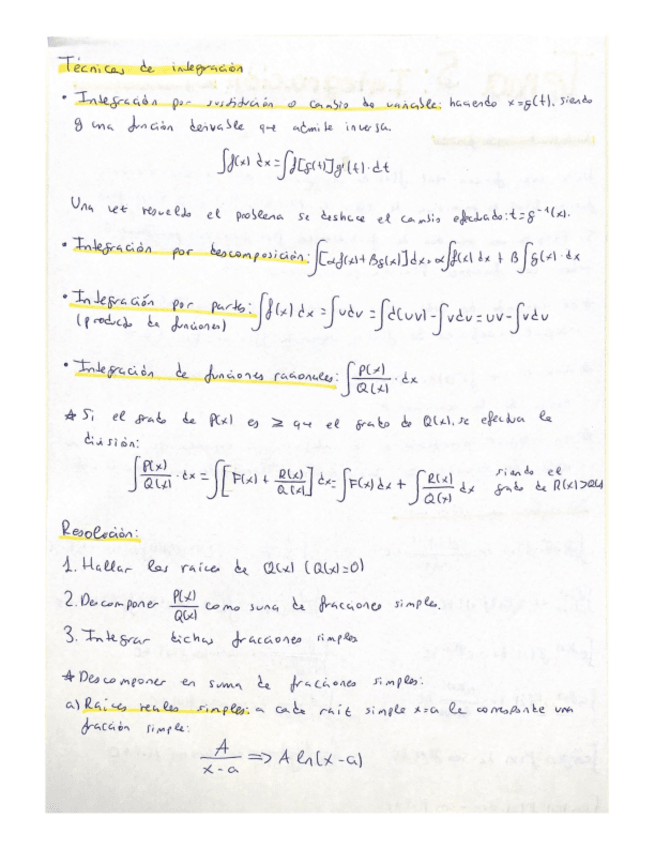 Técnicas de integración
• Integración por sustitución o cambio de variable: haciendo x=g(t), siendo
g una función derivable que admite inversa.
∫f(x) dx = ∫f[g(t)]g'(t)·dt
Una vez resuelto el problema se deshace el cambio efectuado: t=g⁻¹(x).
• Integración por descomposición: ∫[αf(x)+βg(x)]dx = α∫f(x) dx + β∫g(x)·dx
• Integración por partes: ∫f(x) dx = ∫udv = ∫d(uv) - ∫vdu = uv - ∫vdu
(producto de funciones)
• Integración de funciones racionales: ∫P(x)/Q(x)·dx
* Si el grado de P(x) es ≥ que el grado de Q(x), se efectua la
división:
∫P(x)/Q(x)·dx = ∫[F(x) + R(x)/Q(x)] dx = ∫F(x) dx + ∫R(x)/Q(x) dx siendo el
grado de R(x)>Q(x)
Resolución:
1. Hallar las raíces de Q(x) (Q(x)=0)
2. Decomponer P(x)/Q(x) como suma de fracciones simples.
3. Integrar dichas fracciones simples
* Descomponer en suma de fracciones simples:
a) Raíces reales simples: a cada raíz simple x=a le corresponde una
fracción simple:
A/(x-a) => A ln(x-a)